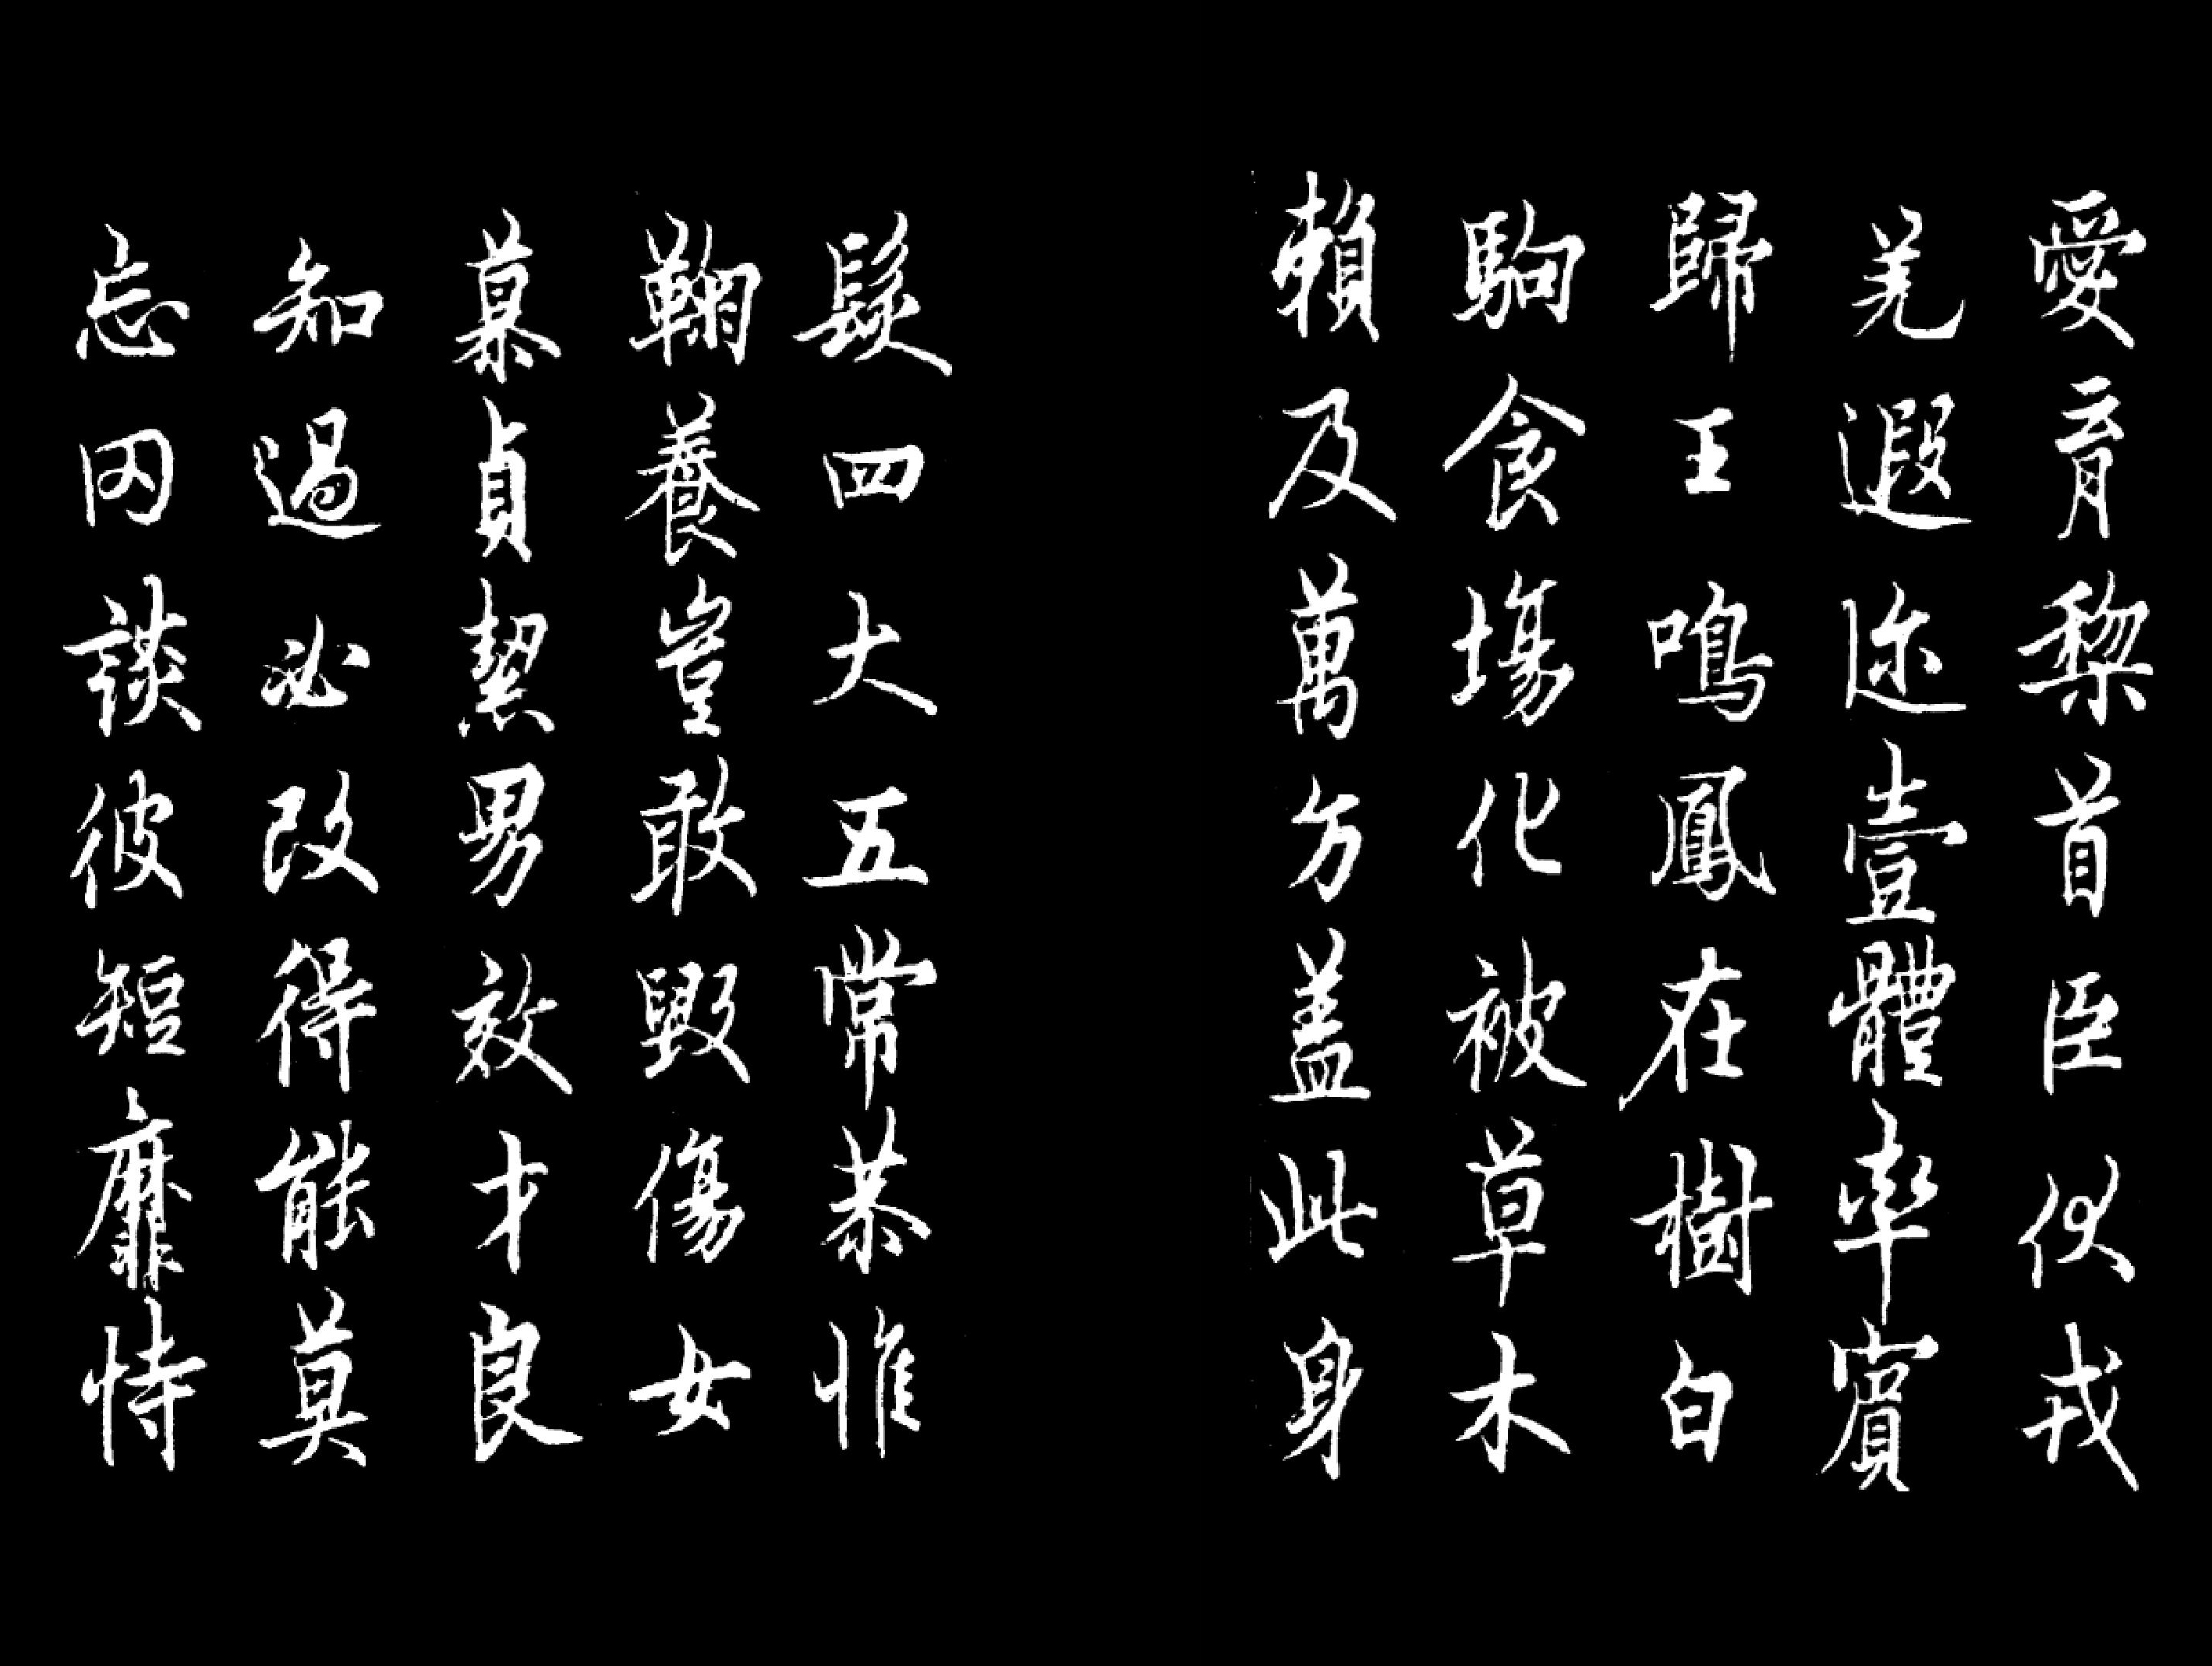 愛育黎首臣伏戎
羌遐迩壹體率賓
歸王鳴鳳在樹白
駒食場化被草木
賴及萬方蓋此身
髮四大五常恭惟
鞠養豈敢毀傷女
慕貞絜男效才良
知過必改得能莫
忘罔談彼短靡恃